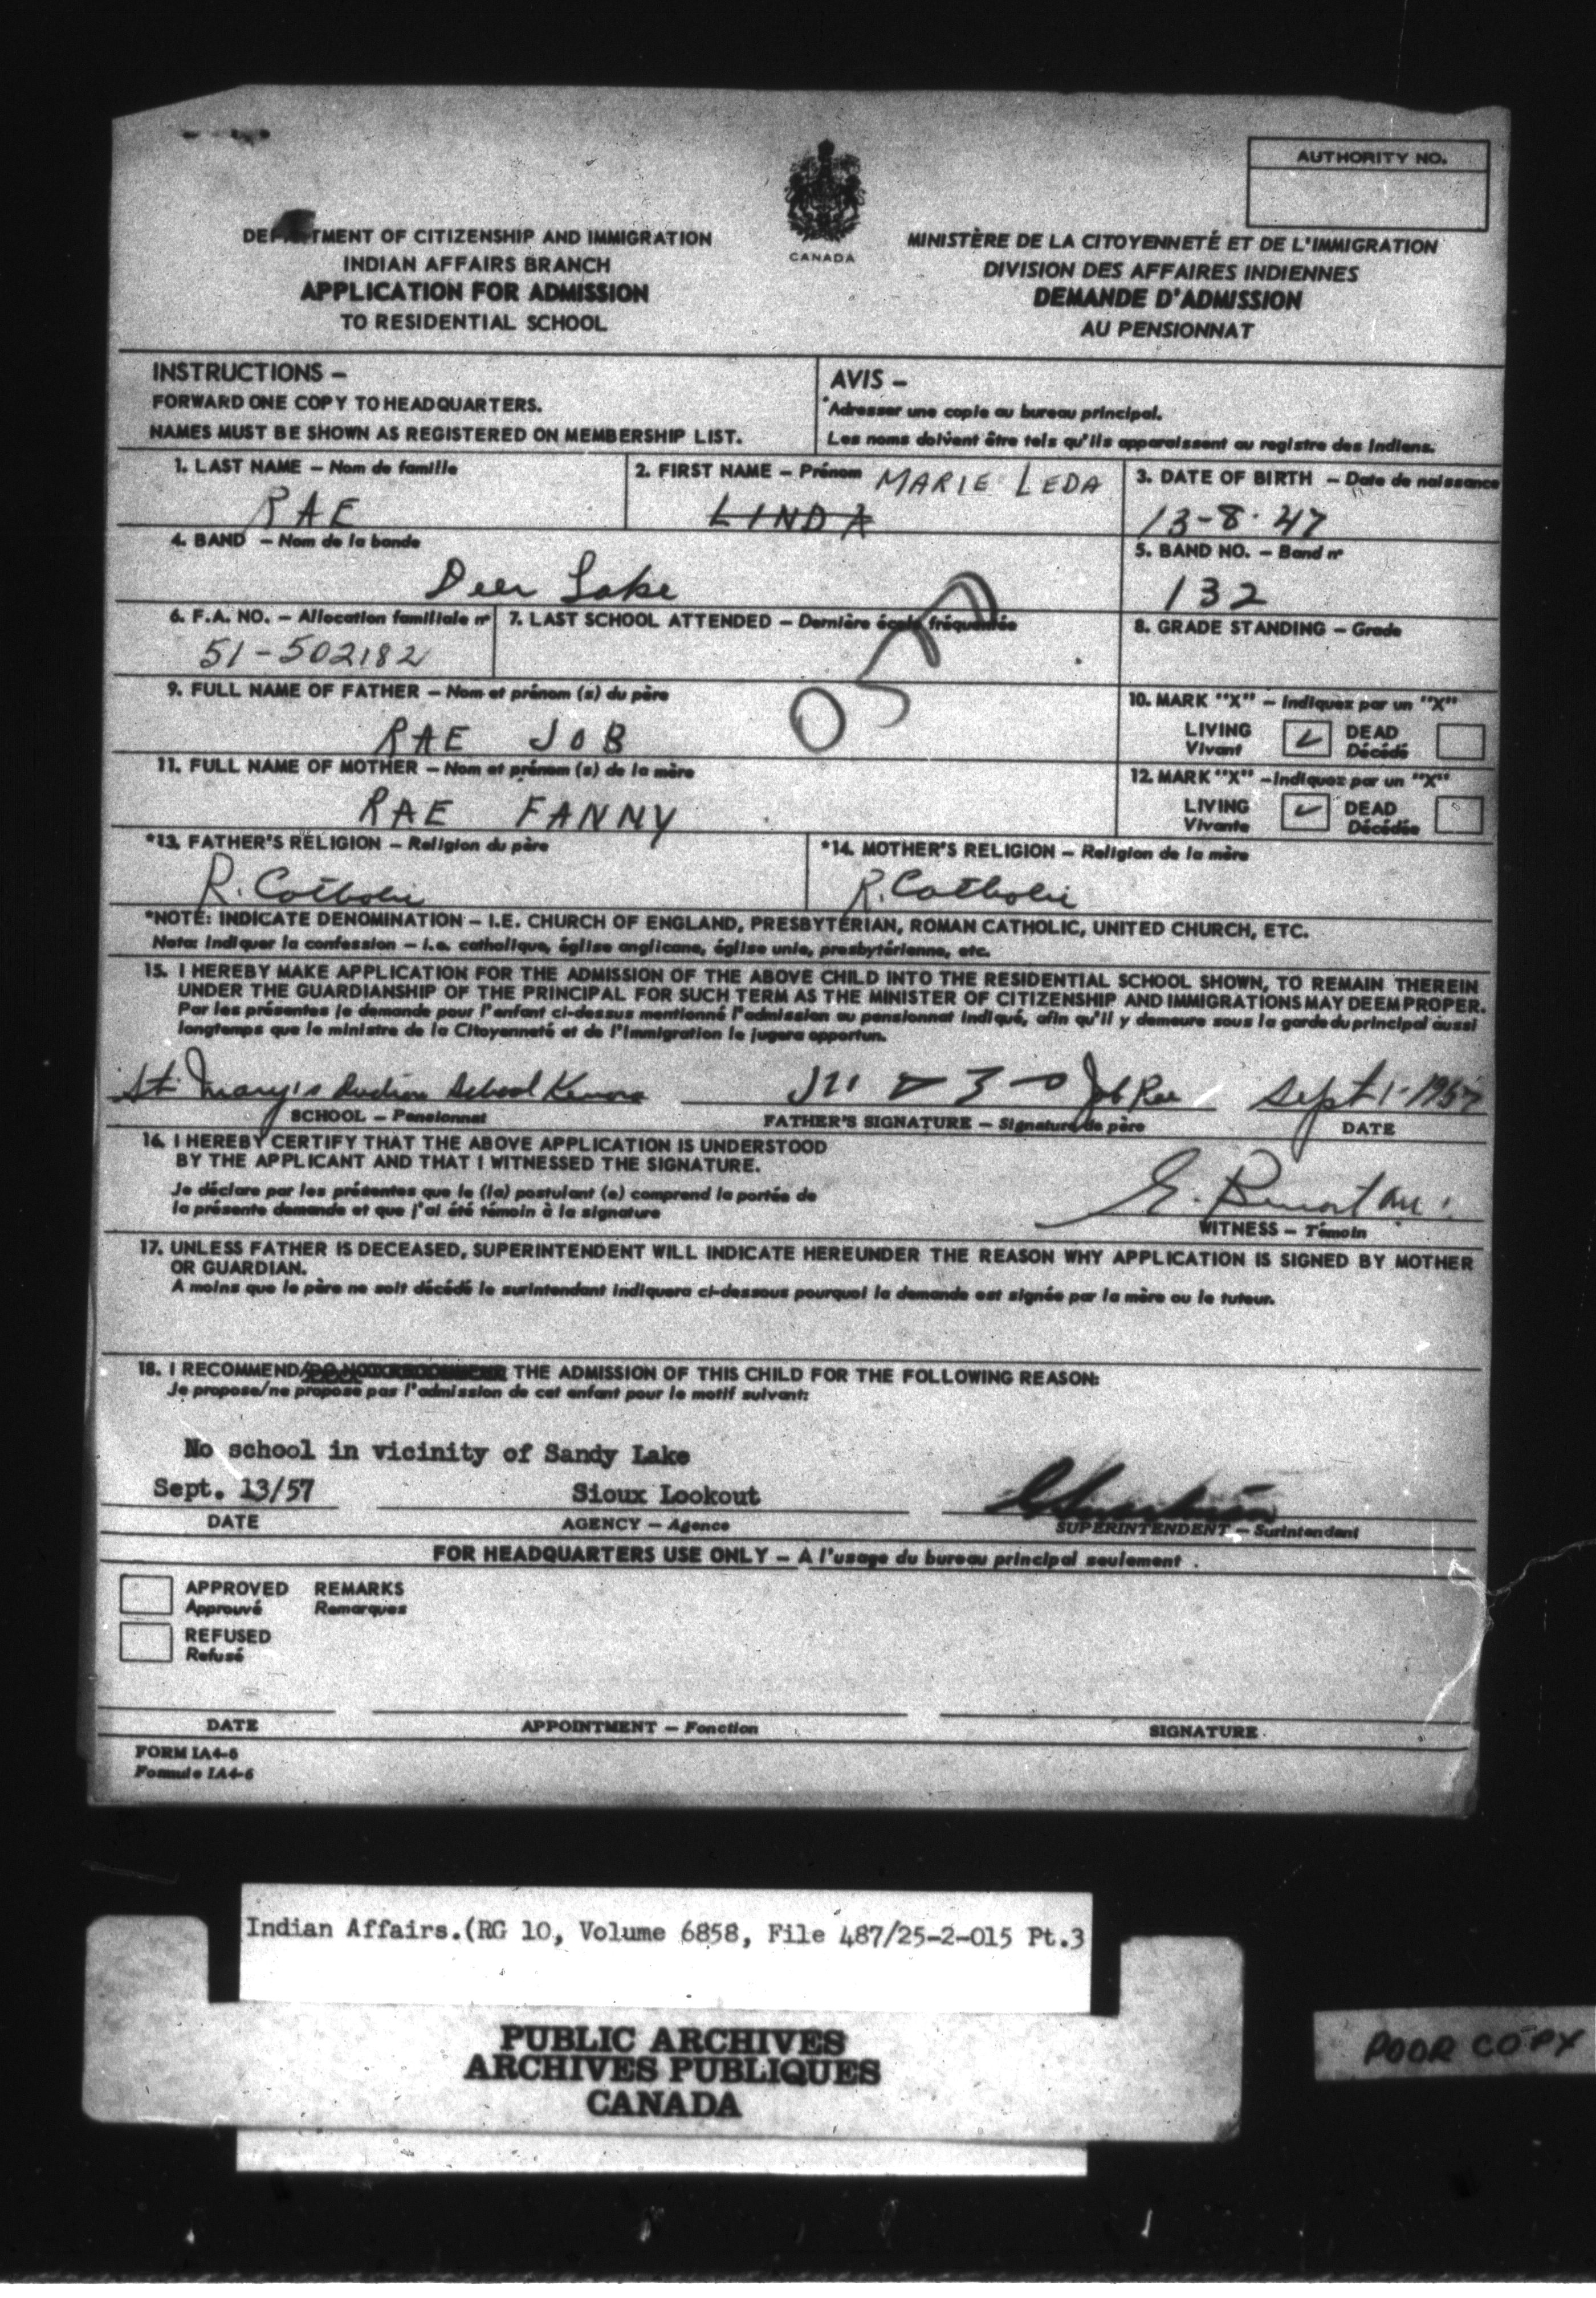 AUTHORITY NO.
CANADA
DEPARTMENT OF CITIZENSHIP AND IMMIGRATION
INDIAN AFFAIRS BRANCH
APPLICATION FOR ADMISSION
TO RESIDENTIAL SCHOOL
MINISTÈRE DE LA CITOYENNETÉ ET DE L'IMMIGRATION
DIVISION DES AFFAIRES INDIENNES
DEMANDE D'ADMISSION
AU PENSIONNAT
INSTRUCTIONS –
FORWARD ONE COPY TO HEADQUARTERS.
NAMES MUST BE SHOWN AS REGISTERED ON MEMBERSHIP LIST.
AVIS –
Adresser une copie au bureau principal.
Les noms doivent être tels qu'ils apparaissent au registre des Indiens.
1. LAST NAME – Nom de famille
RAE
2. FIRST NAME – Prénom MARIE LEDA
LINDA
3. DATE OF BIRTH – Date de naissance
13-8-47
4. BAND – Nom de la bande
Deer Lake
5. BAND NO. – Band nº
132
6. F.A. NO. – Allocation familiale nº
51-502182
7. LAST SCHOOL ATTENDED – Dernière école fréquentée
8. GRADE STANDING – Grade
9. FULL NAME OF FATHER – Nom et prénom (s) du père
RAE JOB
10. MARK "X" – Indiquez par un "X"
LIVING DEAD
Vivant Décédé
11. FULL NAME OF MOTHER – Nom et prénom (s) de la mère
RAE FANNY
12. MARK "X" – Indiquez par un "X"
LIVING DEAD
Vivante Décédée
*13. FATHER'S RELIGION – Religion du père
R. Catholic
*14. MOTHER'S RELIGION – Religion de la mère
R. Catholic
*NOTE: INDICATE DENOMINATION – I.E. CHURCH OF ENGLAND, PRESBYTERIAN, ROMAN CATHOLIC, UNITED CHURCH, ETC.
Nota: Indiquer la confession – i.e. catholique, église anglicane, église unie, presbytérienne, etc.
15. I HEREBY MAKE APPLICATION FOR THE ADMISSION OF THE ABOVE CHILD INTO THE RESIDENTIAL SCHOOL SHOWN, TO REMAIN THEREIN
UNDER THE GUARDIANSHIP OF THE PRINCIPAL FOR SUCH TERM AS THE MINISTER OF CITIZENSHIP AND IMMIGRATIONS MAY DEEM PROPER.
Par les présentes je demande pour l'enfant ci-dessus mentionné l'admission au pensionnat indiqué, afin qu'il y demeure sous la garde du principal aussi
longtemps que le ministre de la Citoyenneté et de l'Immigration le jugera opportun.
St. Mary's Indian School Kenora
Job Rae
Sept 1-1957
SCHOOL – Pensionnat
FATHER'S SIGNATURE – Signature de père
DATE
16. I HEREBY CERTIFY THAT THE ABOVE APPLICATION IS UNDERSTOOD
BY THE APPLICANT AND THAT I WITNESSED THE SIGNATURE.
Je déclare par les présentes que le (la) postulant (e) comprend la portée de
la présente demande et que j'ai été témoin à la signature
WITNESS – Témoin
17. UNLESS FATHER IS DECEASED, SUPERINTENDENT WILL INDICATE HEREUNDER THE REASON WHY APPLICATION IS SIGNED BY MOTHER
OR GUARDIAN.
A moins que le père ne soit décédé le surintendant indiquera ci-dessous pourquoi la demande est signée par la mère ou le tuteur.
18. I RECOMMEND/ THE ADMISSION OF THIS CHILD FOR THE FOLLOWING REASON:
Je propose/ne propose pas l'admission de cet enfant pour le motif suivant:
No school in vicinity of Sandy Lake
Sept. 13/57
Sioux Lookout
DATE
AGENCY – Agence
SUPERINTENDENT – Surintendant
FOR HEADQUARTERS USE ONLY – A l'usage du bureau principal seulement
APPROVED REMARKS
Approuvé Remarques
REFUSED
Refusé
DATE
APPOINTMENT – Fonction
SIGNATURE
FORM IA4-6
Formule IA4-6
Indian Affairs.(RG 10, Volume 6858, File 487/25-2-015 Pt.3
PUBLIC ARCHIVES
ARCHIVES PUBLIQUES
CANADA
POOR COPY